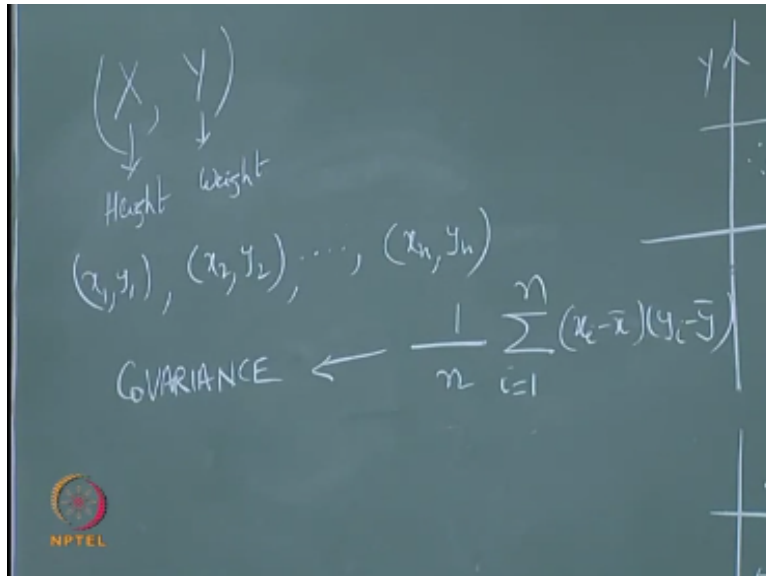 (X, Y)
Height Weight
(x₁, y₁), (x₂, y₂), ...., (xₙ, yₙ)
COVARIANCE ← 1/n ∑ᵢ₌₁ⁿ (xᵢ - x̄)(yᵢ - ȳ)
Y
NPTEL